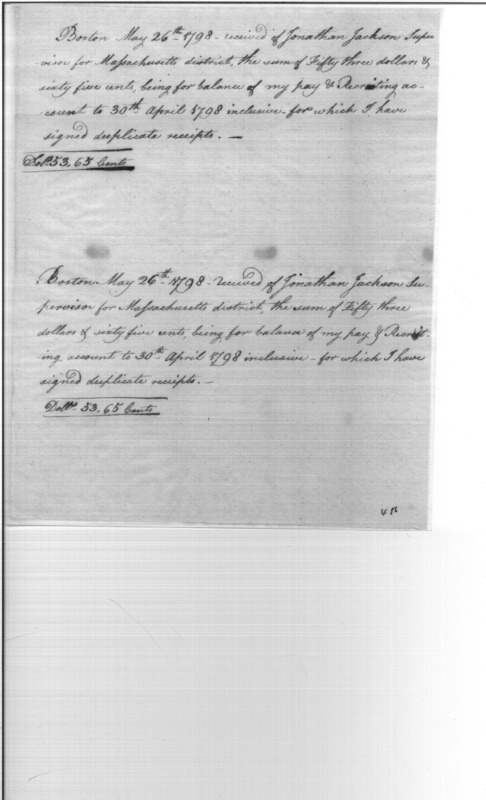 Boston May 26th 1798 - received of Jonathan Jackson Super
visor for Massachusetts district, the sum of Fifty three dollars &
sixty five cents, being for balance of my pay & Recruiting ac-
count to 30th April 1798 inclusive - for which I have
signed duplicate receipts. —
Dolls. 53.65 Cents
Boston May 26th 1798 - received of Jonathan Jackson Su-
pervisor for Massachusetts district, the sum of Fifty three
dollars & sixty five cents, being for balance of my pay & Recruit-
ing account to 30th April 1798 inclusive - for which I have
signed duplicate receipts. —
Dolls. 53.65 Cents